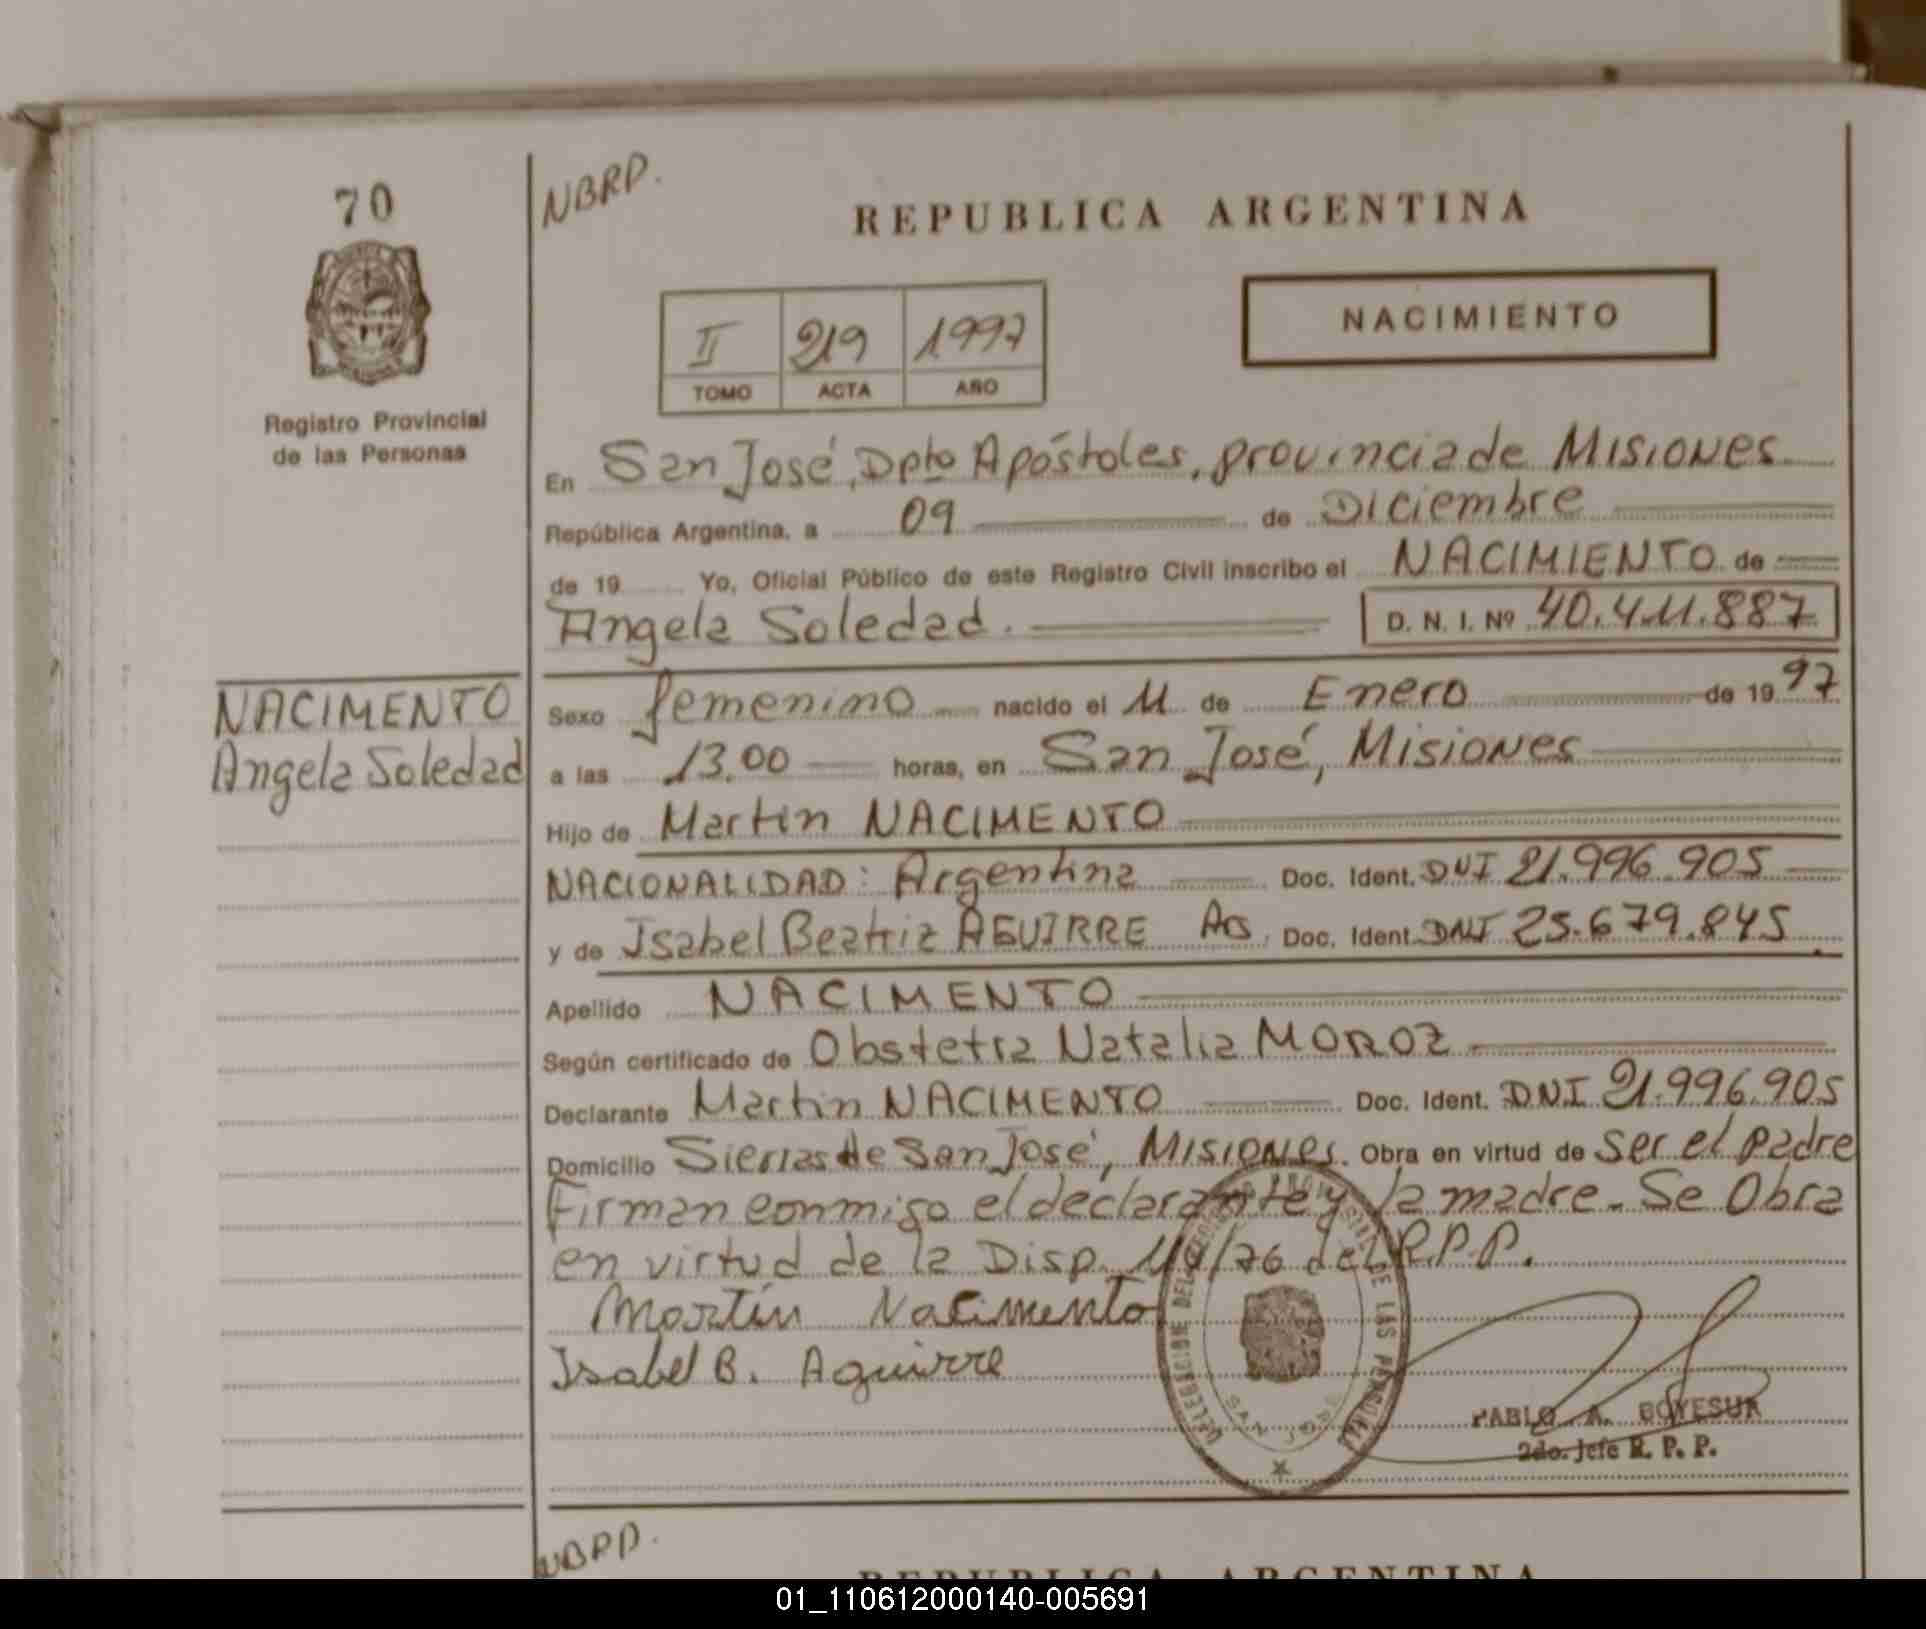 70
Registro Provincial
de las Personas
NACIMENTO
Angela Soledad
NBRP.
REPUBLICA ARGENTINA
II 219 1997
TOMO ACTA AÑO
NACIMIENTO
En San José, Dpto Apóstoles, provincia de Misiones
República Argentina, a 09 de Diciembre
de 19 Yo, Oficial Público de este Registro Civil inscribo el NACIMIENTO de
Angela Soledad. D. N. I. Nº 40.411.887
Sexo femenino nacido el 11 de Enero de 19 97
a las 13.00 horas, en San José, Misiones
Hijo de Martin NACIMENTO
NACIONALIDAD: Argentina Doc. Ident. DNI 21.996.905
y de Isabel Beatriz AGUIRRE Doc. Ident. DNI 25.679.845
Apellido NACIMENTO
Según certificado de Obstetra Natalia MOROZ
Declarante Martin NACIMENTO Doc. Ident. DNI 21.996.905
Domicilio Sierras de San José, Misiones. Obra en virtud de ser el padre
Firman conmigo el declarante y la madre. Se Obra
en virtud de la Disp. /76 del R.P.P.
Martín Nacimento
Isabel B. Aguirre
DELEGACION DEL REGISTRO PROVINCIAL DE LAS PERSONAS
SAN JOSE
PABLO A. BOYESUK
2do. Jefe R. P. P.
NBRP.
REPUBLICA ARGENTINA
01_110612000140-005691